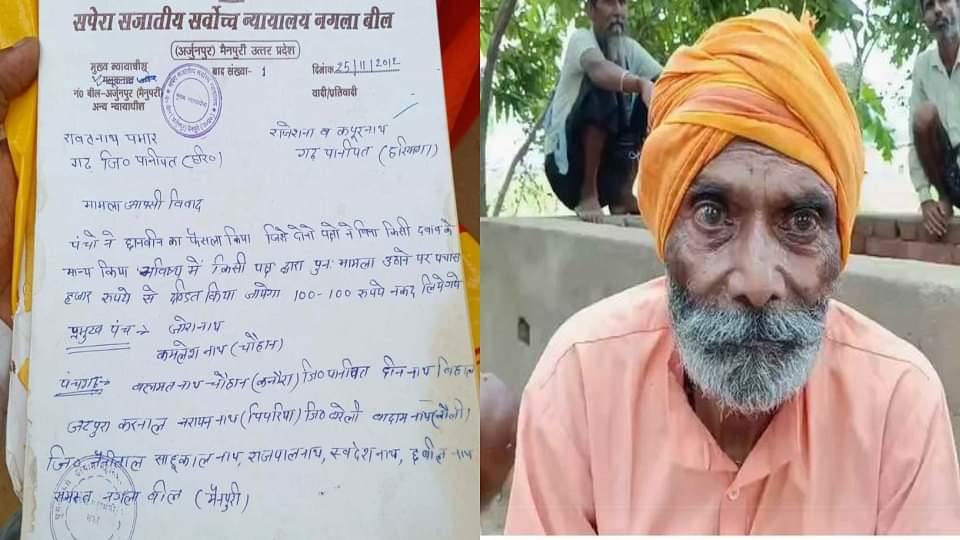 सपेरा सजातीय सर्वोच्च न्यायालय नगला बील
(अर्जुनपुर) मैनपुरी उत्तर प्रदेश
मुख्य न्यायाधीश
वाद संख्या- 1
दिनांक 25/11/2012
नं० बील-अर्जुनपुर (मैनपुरी)
अन्य न्यायाधीश
वादी/प्रतिवादी
रावतनाथ पमार
गढ जि० पानीपत (हरि०)
राजेशना व कपूरनाथ
गढ़ पानीपत (हरियाणा)
मामला आपसी विवाद
पंचो ने छानबीन का फैसला किया जिसे दोनो पक्षो ने बिना किसी दवाब के
मान्य किया भविष्य में किसी पक्ष द्वारा पुनः मामला उठाने पर पचास
हजार रुपये से दण्डित किया जायेगा 100-100 रुपये नकद लिये गये
प्रमुख पंच → जोरानाथ
कमलेश नाथ (चौहान)
पंचगढ़ → चौहान जि० पानीपत दीननाथ
जटपुरा करनाल (पिपरिया) जि० बरेली बादामनाथ
जि० नैनीताल साहूकालनाथ, राजपालनाथ, स्वदेशनाथ, नाथ
समस्त नगला बील (मैनपुरी)